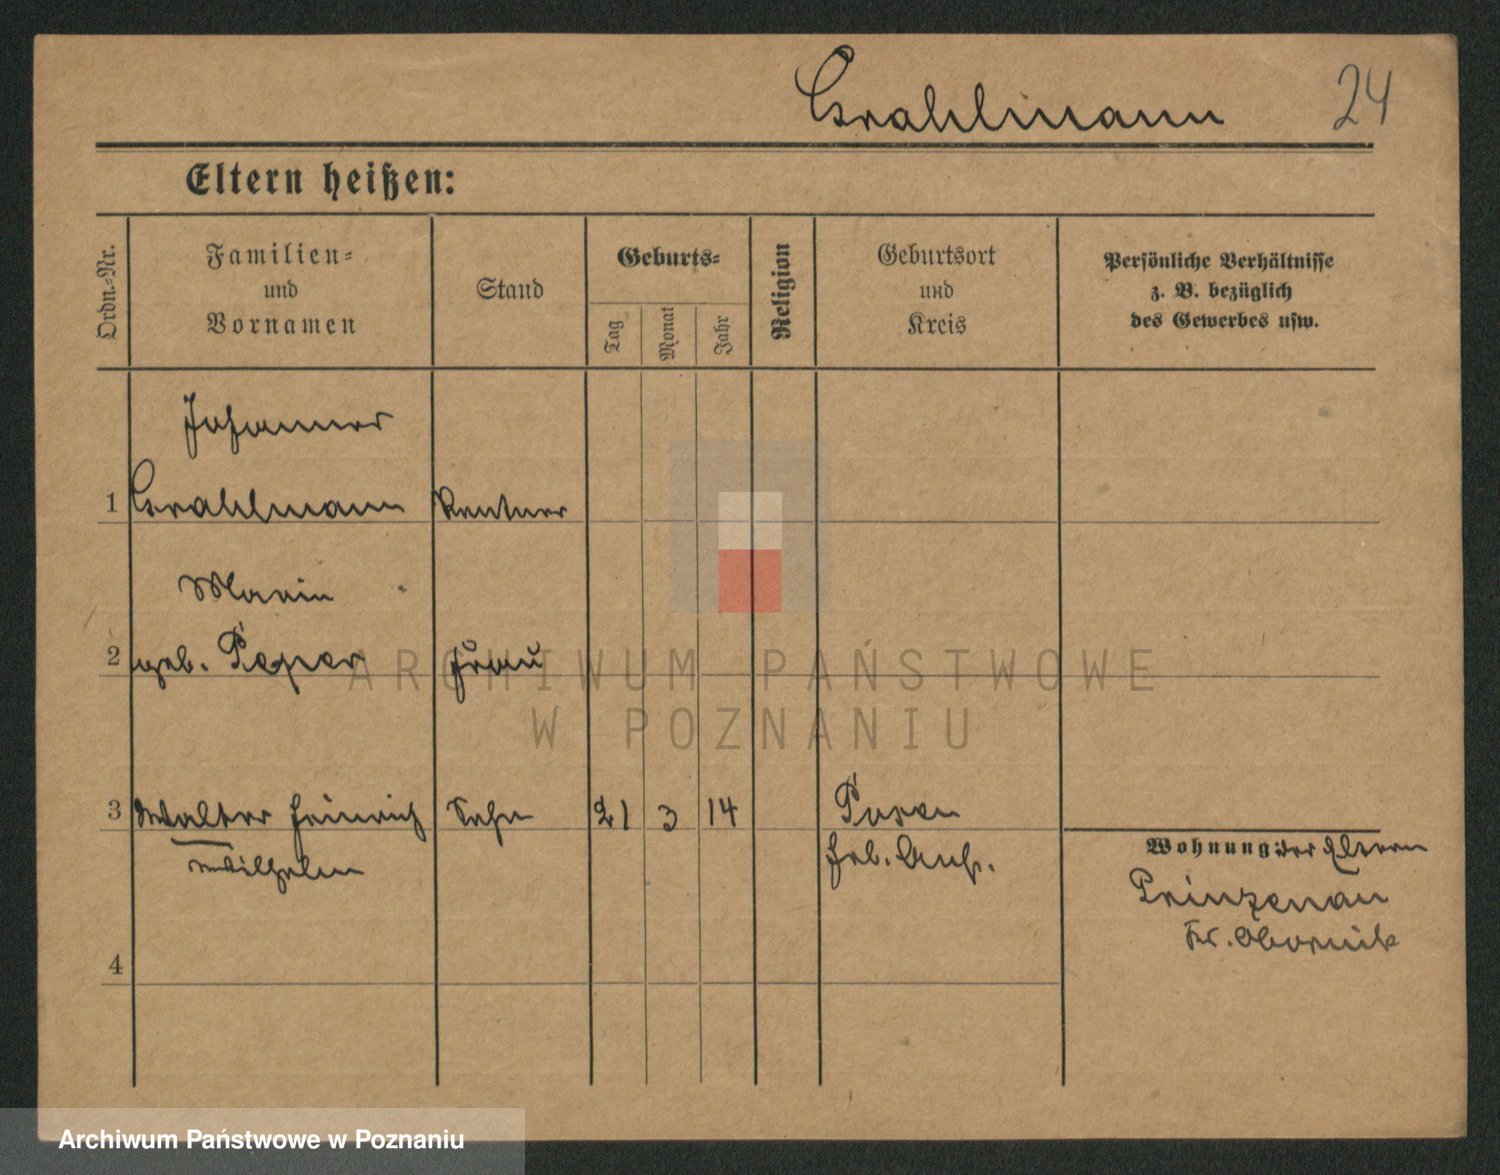 Grahlmann 24
Eltern heißen:
Ordn.-Nr.
Familien-
und
Vornamen
Stand
Geburts-
Tag
Monat
Jahr
Religion
Geburtsort
und
Kreis
Persönliche Verhältnisse
z. B. bezüglich
des Gewerbes usw.
Johannes
1 Grahlmann Rentner
Marie
2 geb. Peper Frau
3 Walter Heinrich Sohn 21 3 14 Posen
Wilhelm
Heb. Anst.
Wohnung: der Eltern
Prinzenau
Kr. Obornik
4
ARCHIWUM PAŃSTWOWE
W POZNANIU
Archiwum Państwowe w Poznaniu